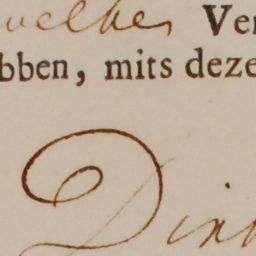 welke Ver
bben, mits deze
Din